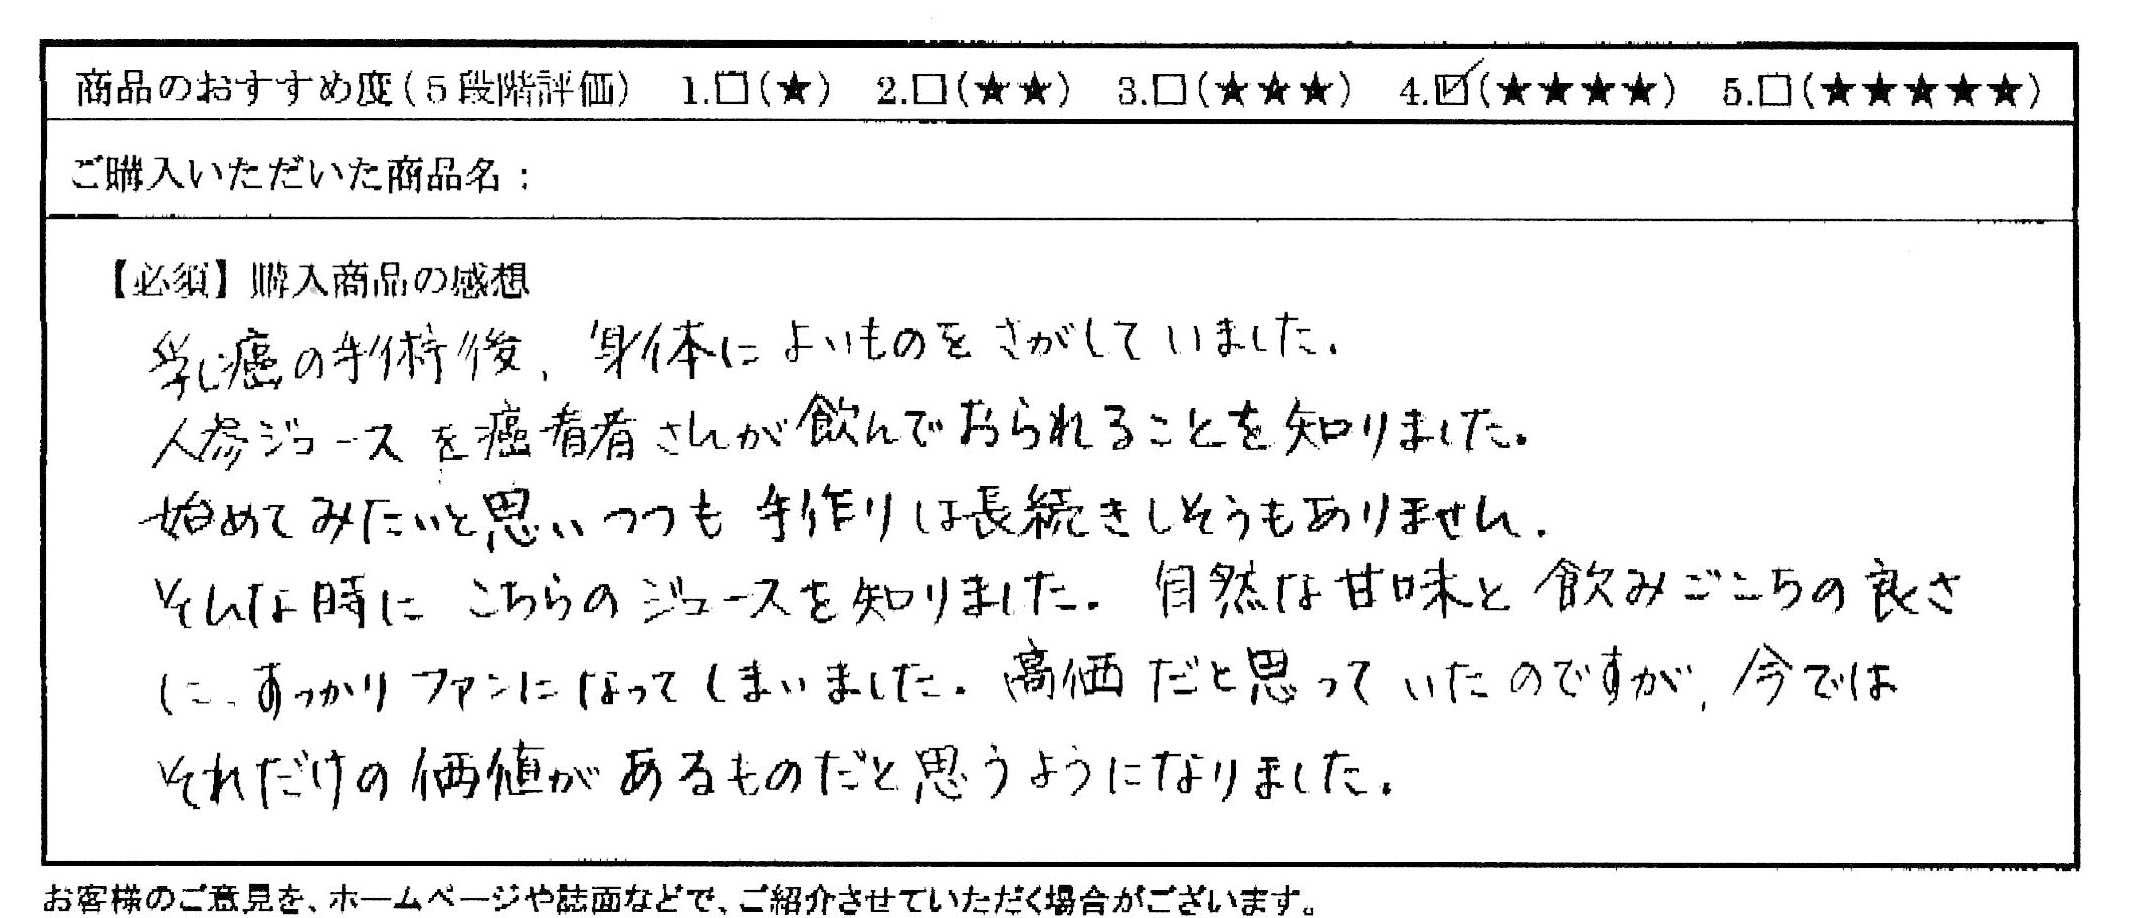 商品のおすすめ度(5段階評価) 1.□(★) 2.□(★★) 3.□(★★★) 4.☑(★★★★) 5.□(★★★★★)
ご購入いただいた商品名：
【必須】購入商品の感想
乳癌の手術後、身体によいものをさがしていました。
人参ジュースを癌患者さんが飲んでおられることを知りました。
始めてみたいと思いつつも手作りは長続きしそうもありません。
そんな時にこちらのジュースを知りました。自然な甘味と飲みごこちの良さ
に、すっかりファンになってしまいました。高価だと思っていたのですが、今では
それだけの価値があるものだと思うようになりました。
お客様のご意見を、ホームページや誌面などで、ご紹介させていただく場合がございます。